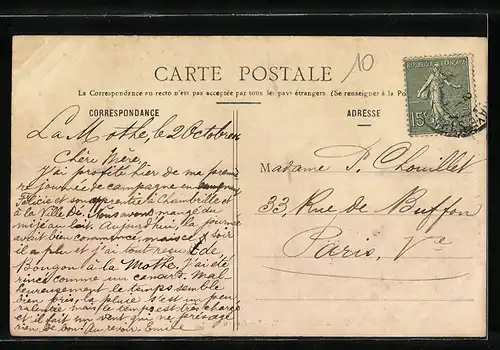 10
CARTE POSTALE
La Correspondance au recto n'est pas acceptée par tous les pays étrangers (Se renseigner à la Po
RÉPUBLIQUE FRANÇAISE
15c
CORRESPONDANCE
ADRESSE
La Mothe, le 2 Octobre
Chère Mère,
J'ai profité hier de ma premiè
re journée de campagne en
Félicie et son à Chambrille et
à la Ville Dé. Nous avons mangé du
mijé au lait. Aujourdhui, la journée
avait bien commencé, mais ce soir
il a plu et j'ai tout resué de
Bougon à la Mothe. J'ai été
rincé comme un canard. Mal-
heureusement le temps semble
bien pris, la pluie s'est un peu
ralentie mais le temps est très chargé
et il fait un vent qui ne présage
rien de bon. Au revoir Emile
Madame P. Chouillet
33, Rue de Buffon
Paris, Ve